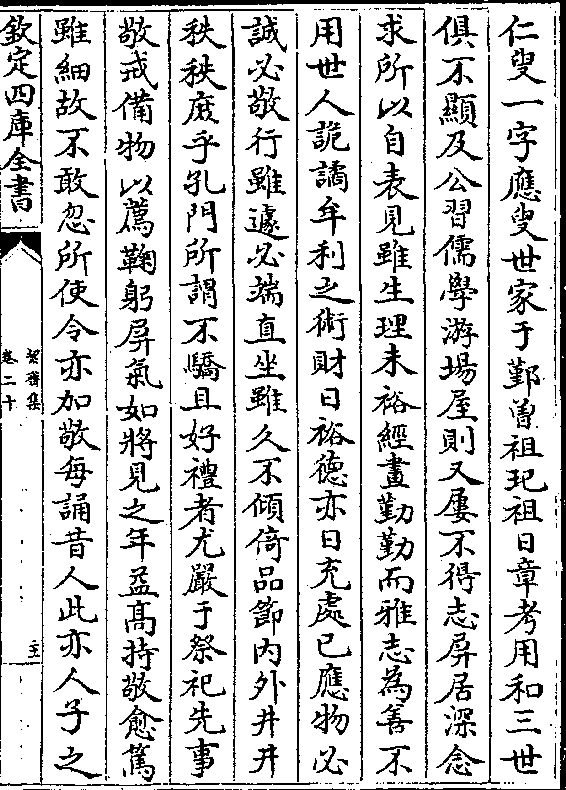 仁叟一字應叟世家于鄞曽祖玘祖日章考用和三世
俱不顯及公習儒學游場屋則又屢不得志屏居深念
求所以自表見雖生理未裕經畫勤勤而雅志為善不
用世人詭譎牟利之術財日裕徳亦日充處已應物必
誠必敬行雖遽必端直坐雖久不傾倚品節内外井井
秩秩庻乎孔門所謂不驕且好禮者尤嚴于祭祀先事
敬戒備物以薦鞠躬屏氣如將見之年益髙持敬愈篤
雖細故不敢忽所使令亦加敬每誦昔人此亦人子之
欽定四庫全書
絜齋集
卷二十